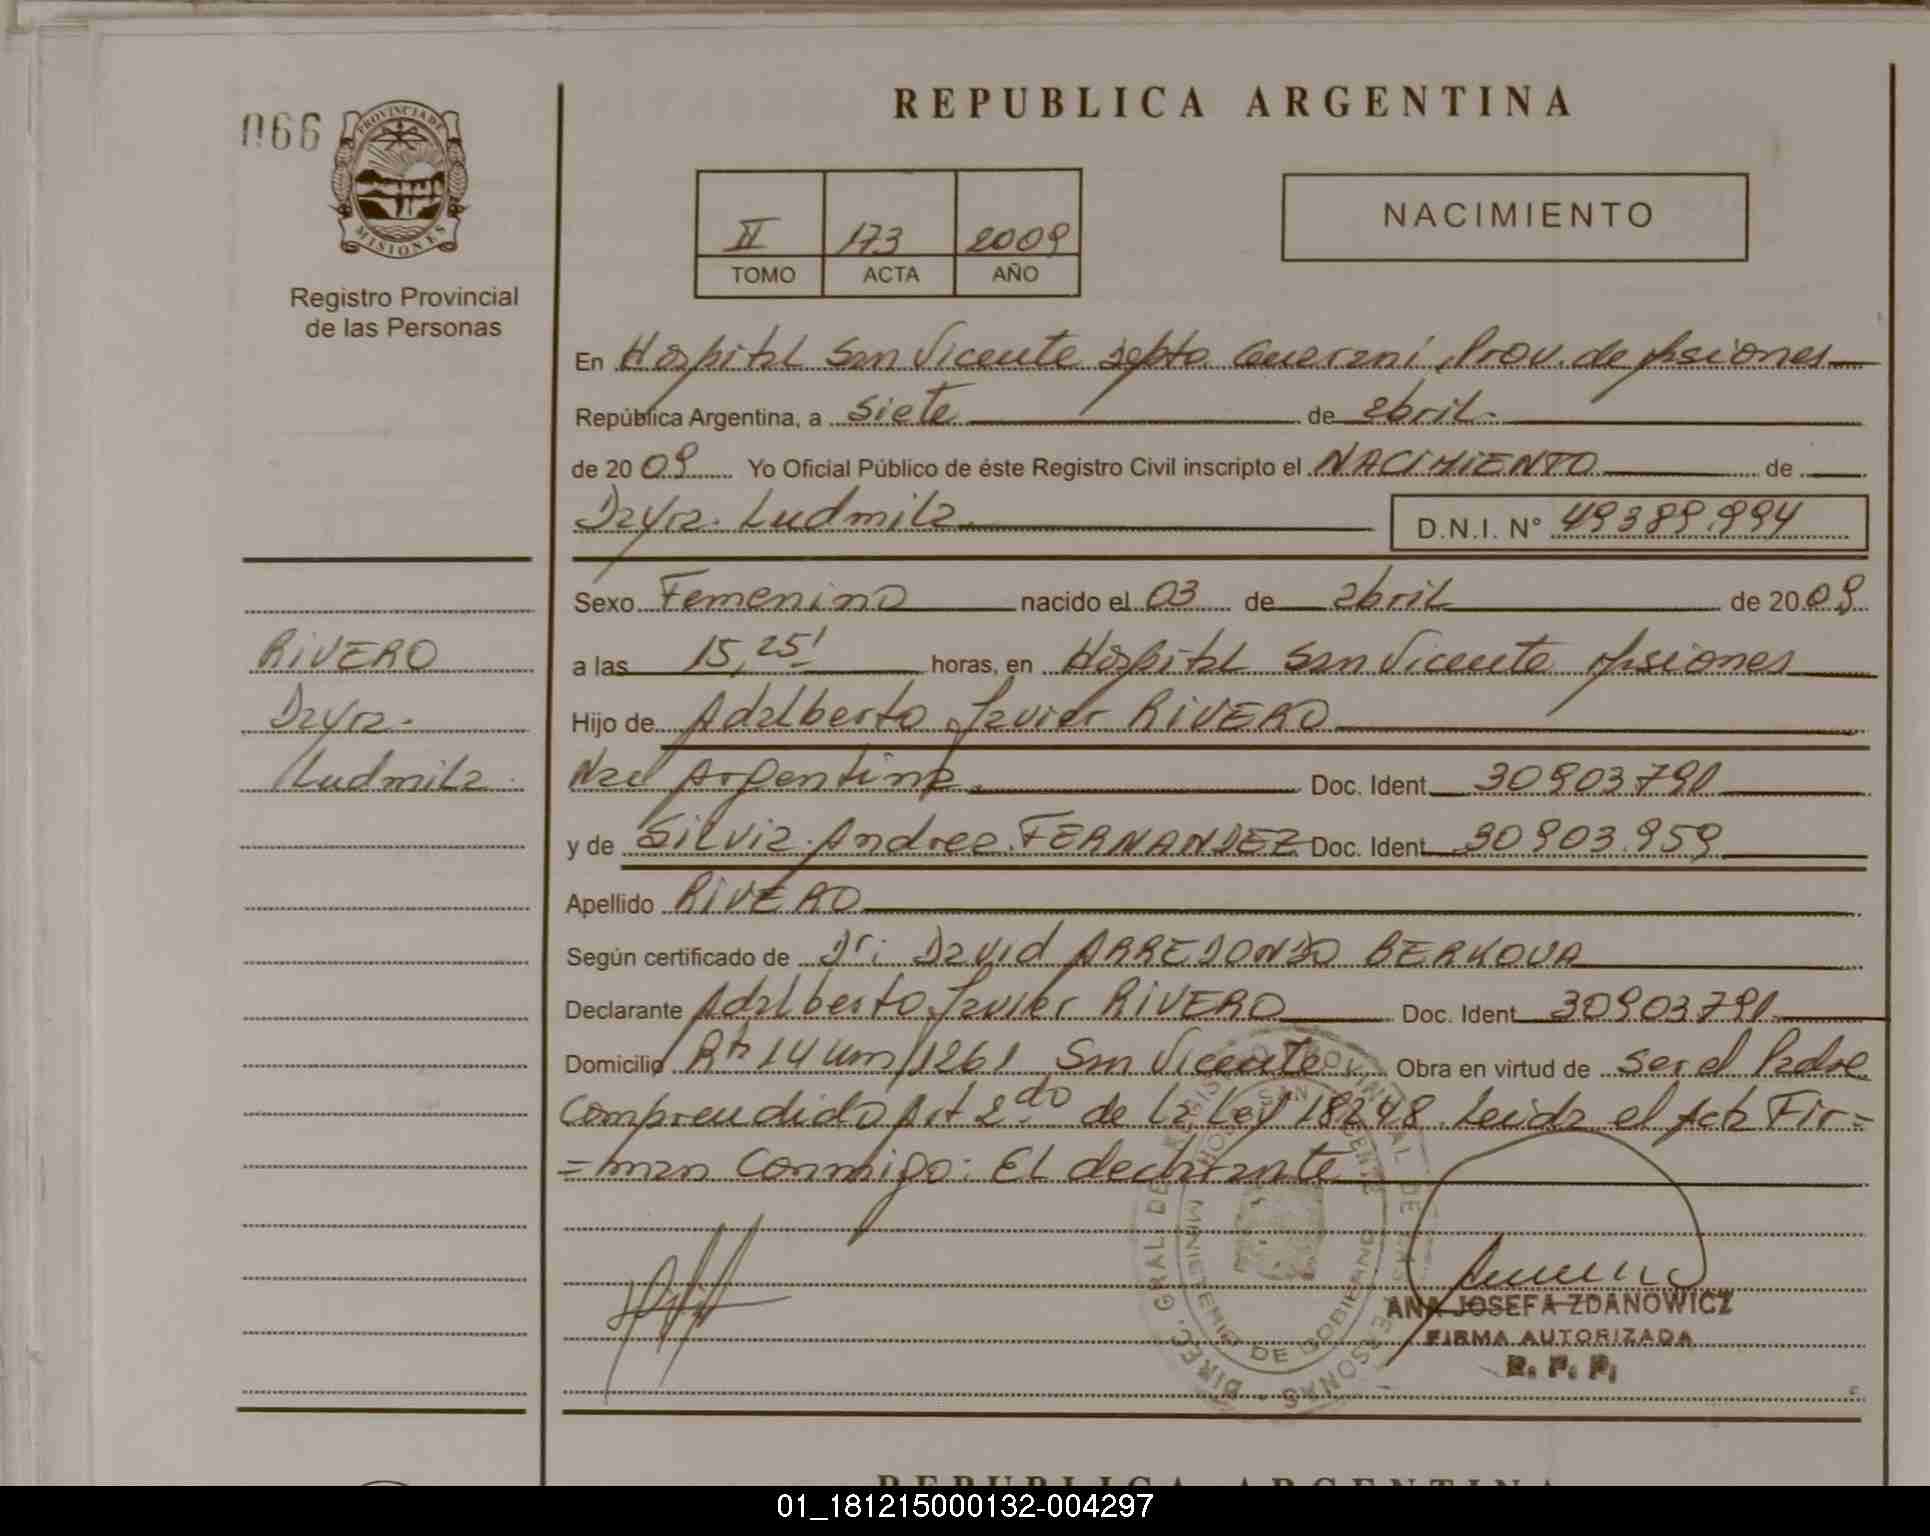 066
PROVINCIA DE
MISIONES
Registro Provincial
de las Personas
REPUBLICA ARGENTINA
II 173 2009
TOMO ACTA AÑO
NACIMIENTO
En Hospital San Vicente Depto. Guarani, Prov. de Misiones
República Argentina, a siete de abril
de 2009 Yo Oficial Público de éste Registro Civil inscripto el NACIMIENTO de
Dayra Ludmila
D.N.I. Nº 49389.994
Sexo Femenino nacido el 03 de abril de 2009
a las 15,25' horas, en Hospital San Vicente Misiones
RIVERO
Dayra
Ludmila
Hijo de Adalberto Javier RIVERO
Nac Argentina Doc. Ident 30903.791
y de Silvia Andrea FERNANDEZ Doc. Ident 30903.959
Apellido RIVERO
Según certificado de Dr: David ARREDONDO BERKOVA
Declarante Adalberto Javier RIVERO Doc. Ident 30903791
Domicilio Rta 14 Km 1261 San Vicente Obra en virtud de ser el Padre
Comprendido Art 2do de la Ley 18248. Leida el Acta Fir=
=man Conmigo: El declarante
DIREC. GRAL. DE REGISTRO PROVINCIAL DE LAS PERSONAS
HOSP. SAN VICENTE
MINISTERIO DE GOBIERNO
ANA JOSEFA ZDANOWICZ
FIRMA AUTORIZADA
R. P. P.
REPUBLICA ARGENTINA
01_181215000132-004297